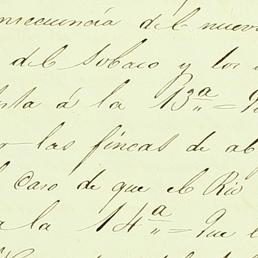 nsecuencia del nuevo
del Tobaco y los
sta á la 13ª = Que
las fincas de ab
l caso de que el Rio
a la 14ª = Que